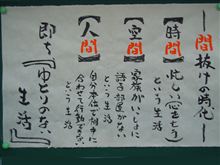 ー間抜けの時代ー
【時間】忙しい(心を亡う)
という生活
【空間】家族がいっしょに
語る部屋がない
という生活
【人間】自分本位で仲間に
合わせて行動できない
という生活
即ち『ゆとりのない
生活』